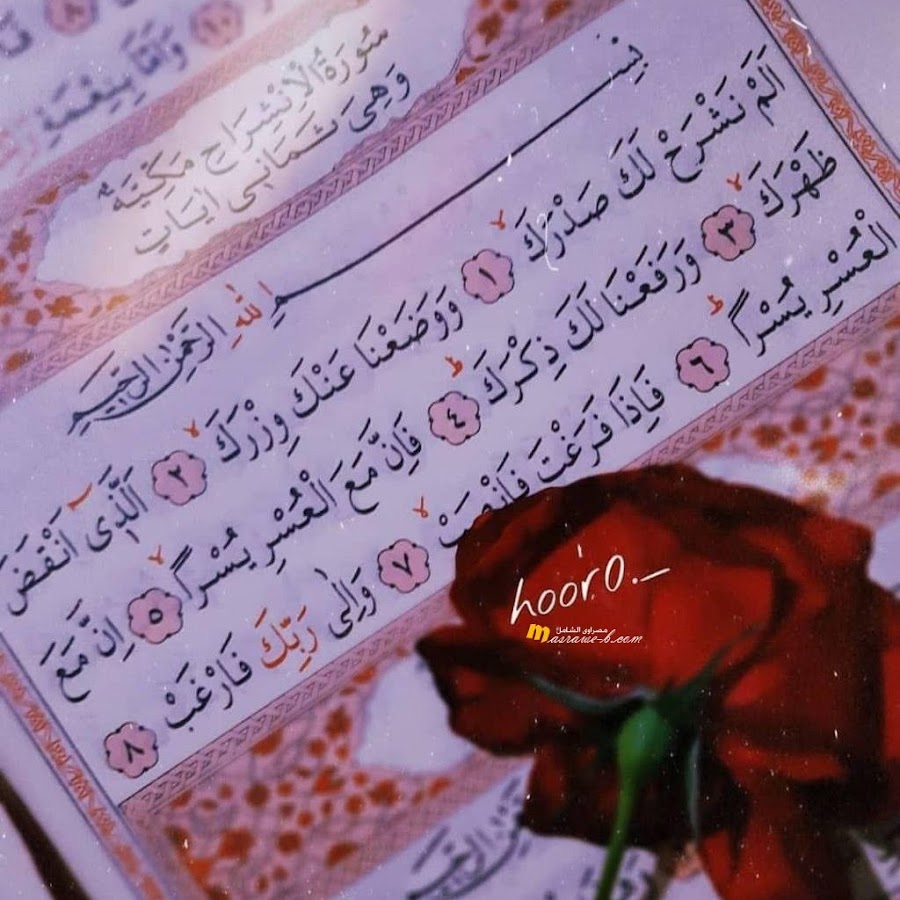 وَاَمَّا بِنِعْمَةِ
١٠
سُورَةُ الْاِنْشِرَاحِ مَكِّيَّةٌ
وَهِيَ ثَمَانِي اٰيَاتٍ
بِسْمِ اللهِ الرَّحْمٰنِ الرَّحِيمِ
اَلَمْ نَشْرَحْ لَكَ صَدْرَكَ ۙ ١ وَوَضَعْنَا عَنْكَ وِزْرَكَ ۙ ٢ اَلَّذٓى اَنْقَضَ
ظَهْرَكَ ۙ ٣ وَرَفَعْنَا لَكَ ذِكْرَكَ ۜ ٤ فَاِنَّ مَعَ الْعُسْرِ يُسْرًا ۙ ٥ اِنَّ مَعَ
الْعُسْرِ يُسْرًا ۜ ٦ فَاِذَا فَرَغْتَ فَانْصَبْ ۙ ٧ وَاِلٰى رَبِّكَ فَارْغَبْ ٨
hoor0._
مصراوى الشامل
masrawe-b.com